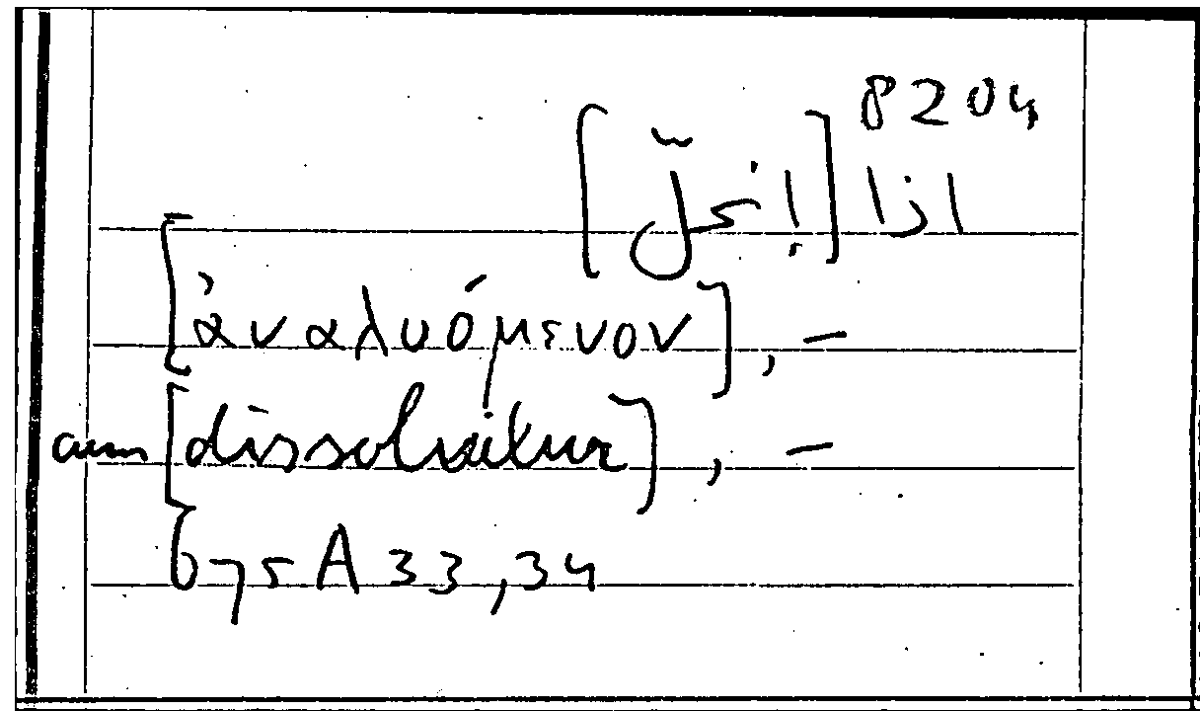 8204
اذا [إنحلّ]
[ἀναλυόμενον], –
cum [dissolvitur], –
675 A 33, 34